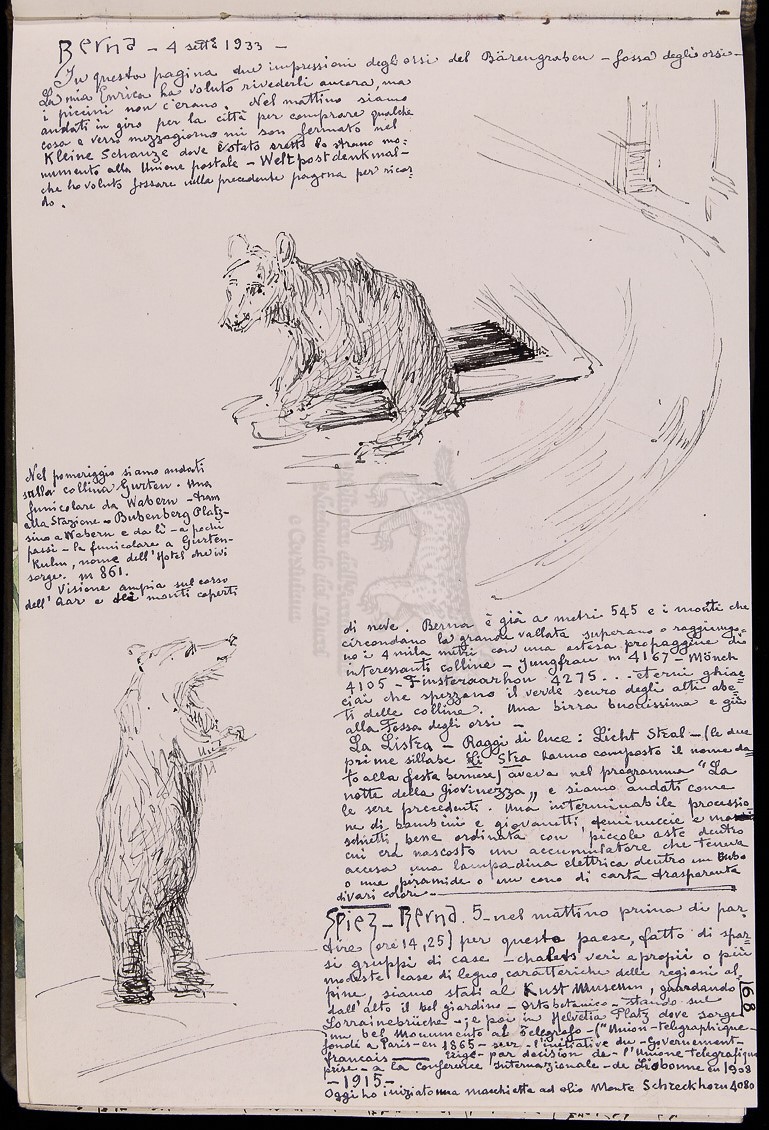 Berna - 4 sett.e 1933 -
In questa pagina due impressioni degli orsi del Bärengraben - fossa degli orsi -
La mia Enrica ha voluto rivederli ancora, ma
i piccini non c'erano. Nel mattino siamo
andati in giro per la città per comprare qualche
cosa e verso mezzogiorno mi son fermato nel
Kleine Schanze dove è stato eretto lo strano mo=
numento alla Unione postale - Weltpostdenkmal -
che ho voluto fissare nella precedente pagina per ricor=
do.
Nel pomeriggio siamo andati
sulla collina Gurten. Una
funicolare da Wabern - tram
alla Stazione - Bubenberg Platz -
sino a Wabern e da lì - a pochi
passi - la funicolare a Gurten-
Kulm, nome dell'Hotel che ivi
sorge. m 861.
Visione ampia sul corso
dell'Aar e dei monti coperti
di neve. Berna è già a metri 545 e i monti che
circondano la grande vallata superano o raggiungo=
no i 4 mila metri con una estesa propaggine di
interessanti colline - Jungfrau m 4167 - Mönch
4105 - Finsteraarhorn 4275 ... eterni ghiac=
ciai che spezzano il verde scuro degli alti abe=
ti delle colline. Una birra buonissima e giù
alla Fossa degli orsi -
La Listra - Raggi di luce: Licht Stral - (le due
prime sillabe Li Stra hanno composto il nome da=
to alla festa bernese) aveva nel programma "La
notte della Giovinezza" e siamo andati come
le sere precedenti. Una interminabile processio=
ne di bambini e giovanetti, femminucce e ma
schietti, bene ordinata con piccole aste dentro
cui era nascosto un accumulatore che teneva
accesa una lampadina elettrica dentro un tubo
o una piramide o un cono di carta trasparente
di vari colori.
Spiez - Berna. 5 - nel mattino prima di par=
tire (ore 14,25) per questo paese, fatto di spar=
si gruppi di case - chalets veri e propii o più
modeste case di legno caratteriche delle regioni al
pine, siamo stati al Kust Museum, guardando
dall'alto il bel giardino - orto botanico - stando sul
Lorrainebrücke - e poi in Helvetia Platz dove sorge
un bel Monumento al Telegrafo - ("Union - telegraphique -
fondé a Paris - en 1865 - sur - l'initiative du - Governement -
francais - Erigé - par decision de - l'Unione telegrafique
prise - a la conference Internazionale - de Lisbonne en 1908
- 1915 -
Oggi ho iniziato una macchietta ad olio Monte Schreckhorn 4080
168